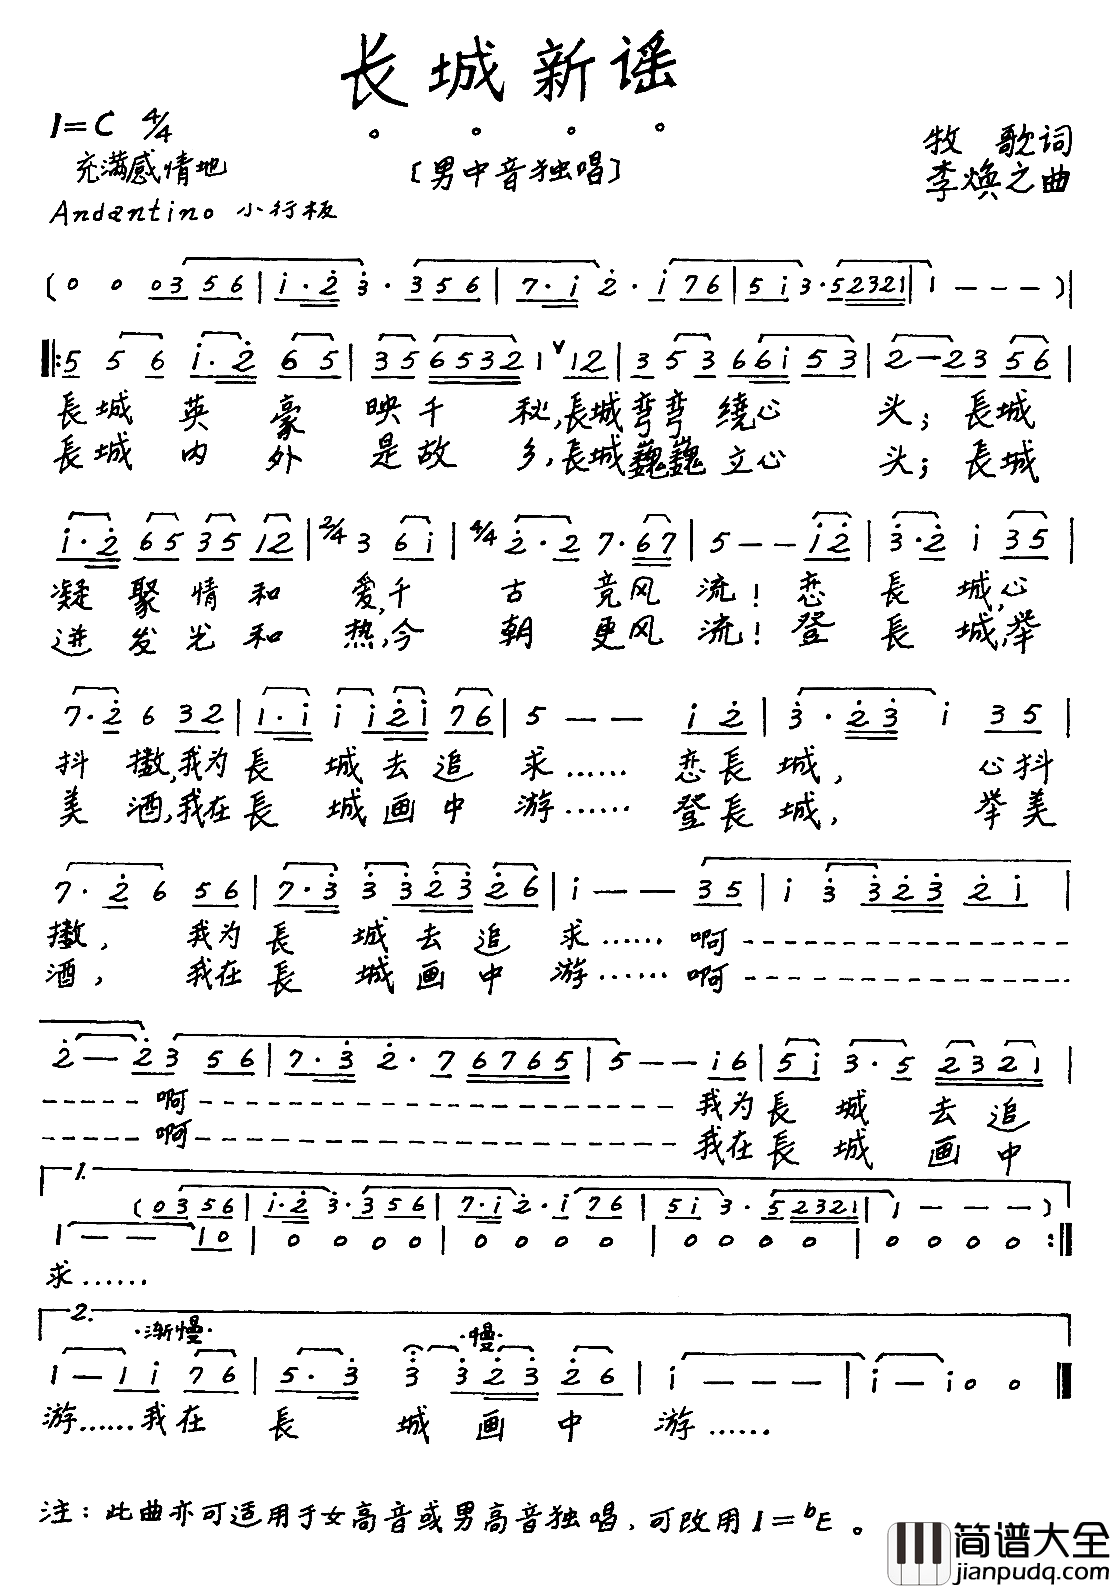 长城新谣
1=C 4/4
充满感情地
[男中音独唱]
牧 歌词
李焕之曲
Andantino 小行板
(0 0 03 56 | i·2 3·3 56 | 7·i 2·i 76 | 5i 3·52321 | 1 - - - )|
5 5 6 i·2 65 | 35 6532 1 ∨ 12 | 3 53 66i 53 | 2-23 56 |
長城 英 豪 映千 秋,長城弯弯 绕心 头；長城
長城 内 外 是故 乡,長城巍巍 立心 头；長城
i·2 65 35 12 | 2/4 3 6i | 4/4 2·2 7·67 | 5 - - i2 | 3·2 i 35 |
凝 聚 情 和 爱,千 古 竞风 流！恋 長 城,心
迸 发 光 和 热,今 朝 更风 流！登 長 城,举
7·2 6 32 | 1·i i i2i 76 | 5 - - i 2 | 3·23 i 35 |
抖 擞,我为長 城去追 求…… 恋長城， 心抖
美 酒,我在長 城画中 游…… 登長城， 举美
7·2 6 56 | 7·3 3 323 26 | i - - 35 | i 3 323 2 i |
擞， 我为長 城去追 求…… 啊
酒， 我在長 城画中 游…… 啊
2 - 23 56 | 7·3 2·7 6765 | 5 - - i6 | 5i 3·5 2321 |
啊 我为長 城 去 追
啊 我在長 城 画 中
1.
(03 56 | i·2 3·3 56 | 7·i 2·i 76 | 5i 3·52321 | 1 - - - )
1 - - 10 | 0 0 0 0 | 0 0 0 0 | 0 0 0 0 | 0 0 0 0 :|
求……
2.
·渐慢· ·慢·
1 - 1 i 76 | 5·3 3 323 26 | i - - - | i - i 0 0 |
游……我在 長 城 画 中 游……
注：此曲亦可适用于女高音或男高音独唱，可改用1=bE。
简谱大全
jianpudq.com